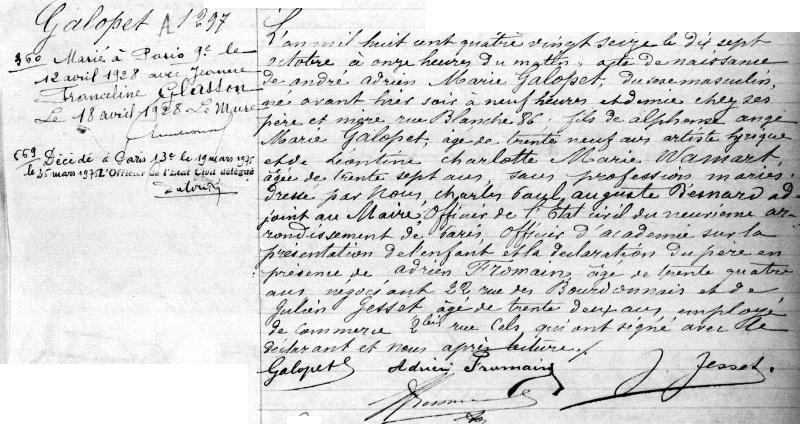 Galopet A 1297
360 Marié à Paris 9e le
12 avril 1928 avec Jeanne
Franceline Glasson
Le 18 avril 1928 Le Maire
669 Décédé à Paris 13e le 19 mars 1975
le 25 mars 1975 L'Officier de l'Etat Civil délégué
L'an mil huit cent quatre vingt seize le dix sept
octobre à onze heures du matin; acte de naissance
de andré adrien Marie Galopet, du sexe masculin,
né avant hier soir à neuf heures et demie chez ses
père et mère rue Blanche 86; fils de alphonse ange
Marie Galopet, âgé de trente neuf ans artiste lyrique
et de Léontine charlotte Marie Wamart,
âgée de trente sept ans, sans profession mariés;
dressé par Nous, charles Paul auguste Besnard ad-
joint au Maire, Officier de l'Etat civil du neuvième ar-
rondissement de Paris Officier d'académie sur la
présentation de l'enfant et la déclaration du père en
présence de adrien Fromain, âgé de trente quatre
ans négociant 22 rue des Bourdonnais et de
Julien Jesset âgé de trente deux ans, employé
de commerce 2bis rue Cels, qui ont signé avec le
déclarant et nous après lecture./.
Galopet Adrien Fromain J. Jesset.